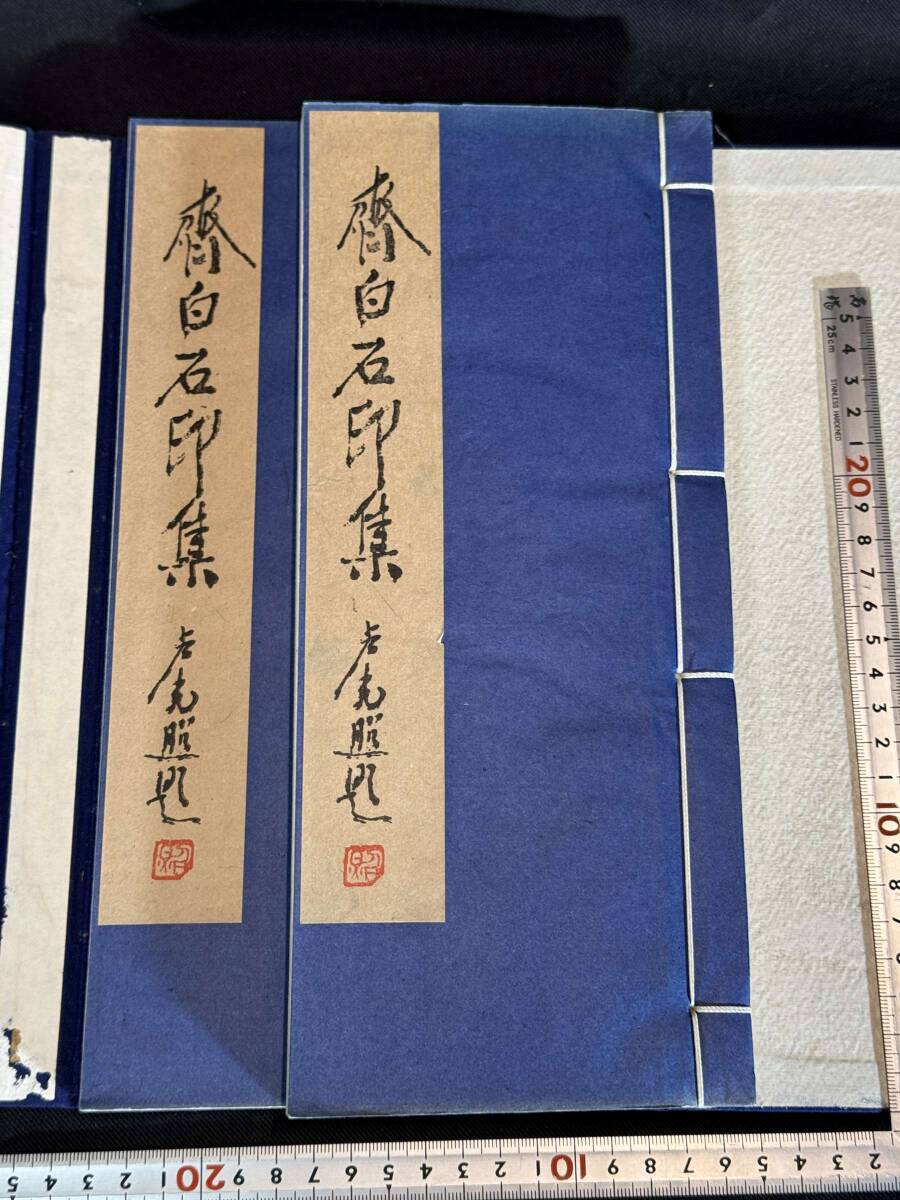 齊白石印集
照題
齊白石印集
照題
25cm
STAINLESS HARDENED
5 4 3 2 1 20 9 8 7 6 5 4 3 2 1 10 9 8 7
5 4 3 2 1 20 9 8 7 6 5 4 3 2 1 10 9 8 7 6 5 4 3 2